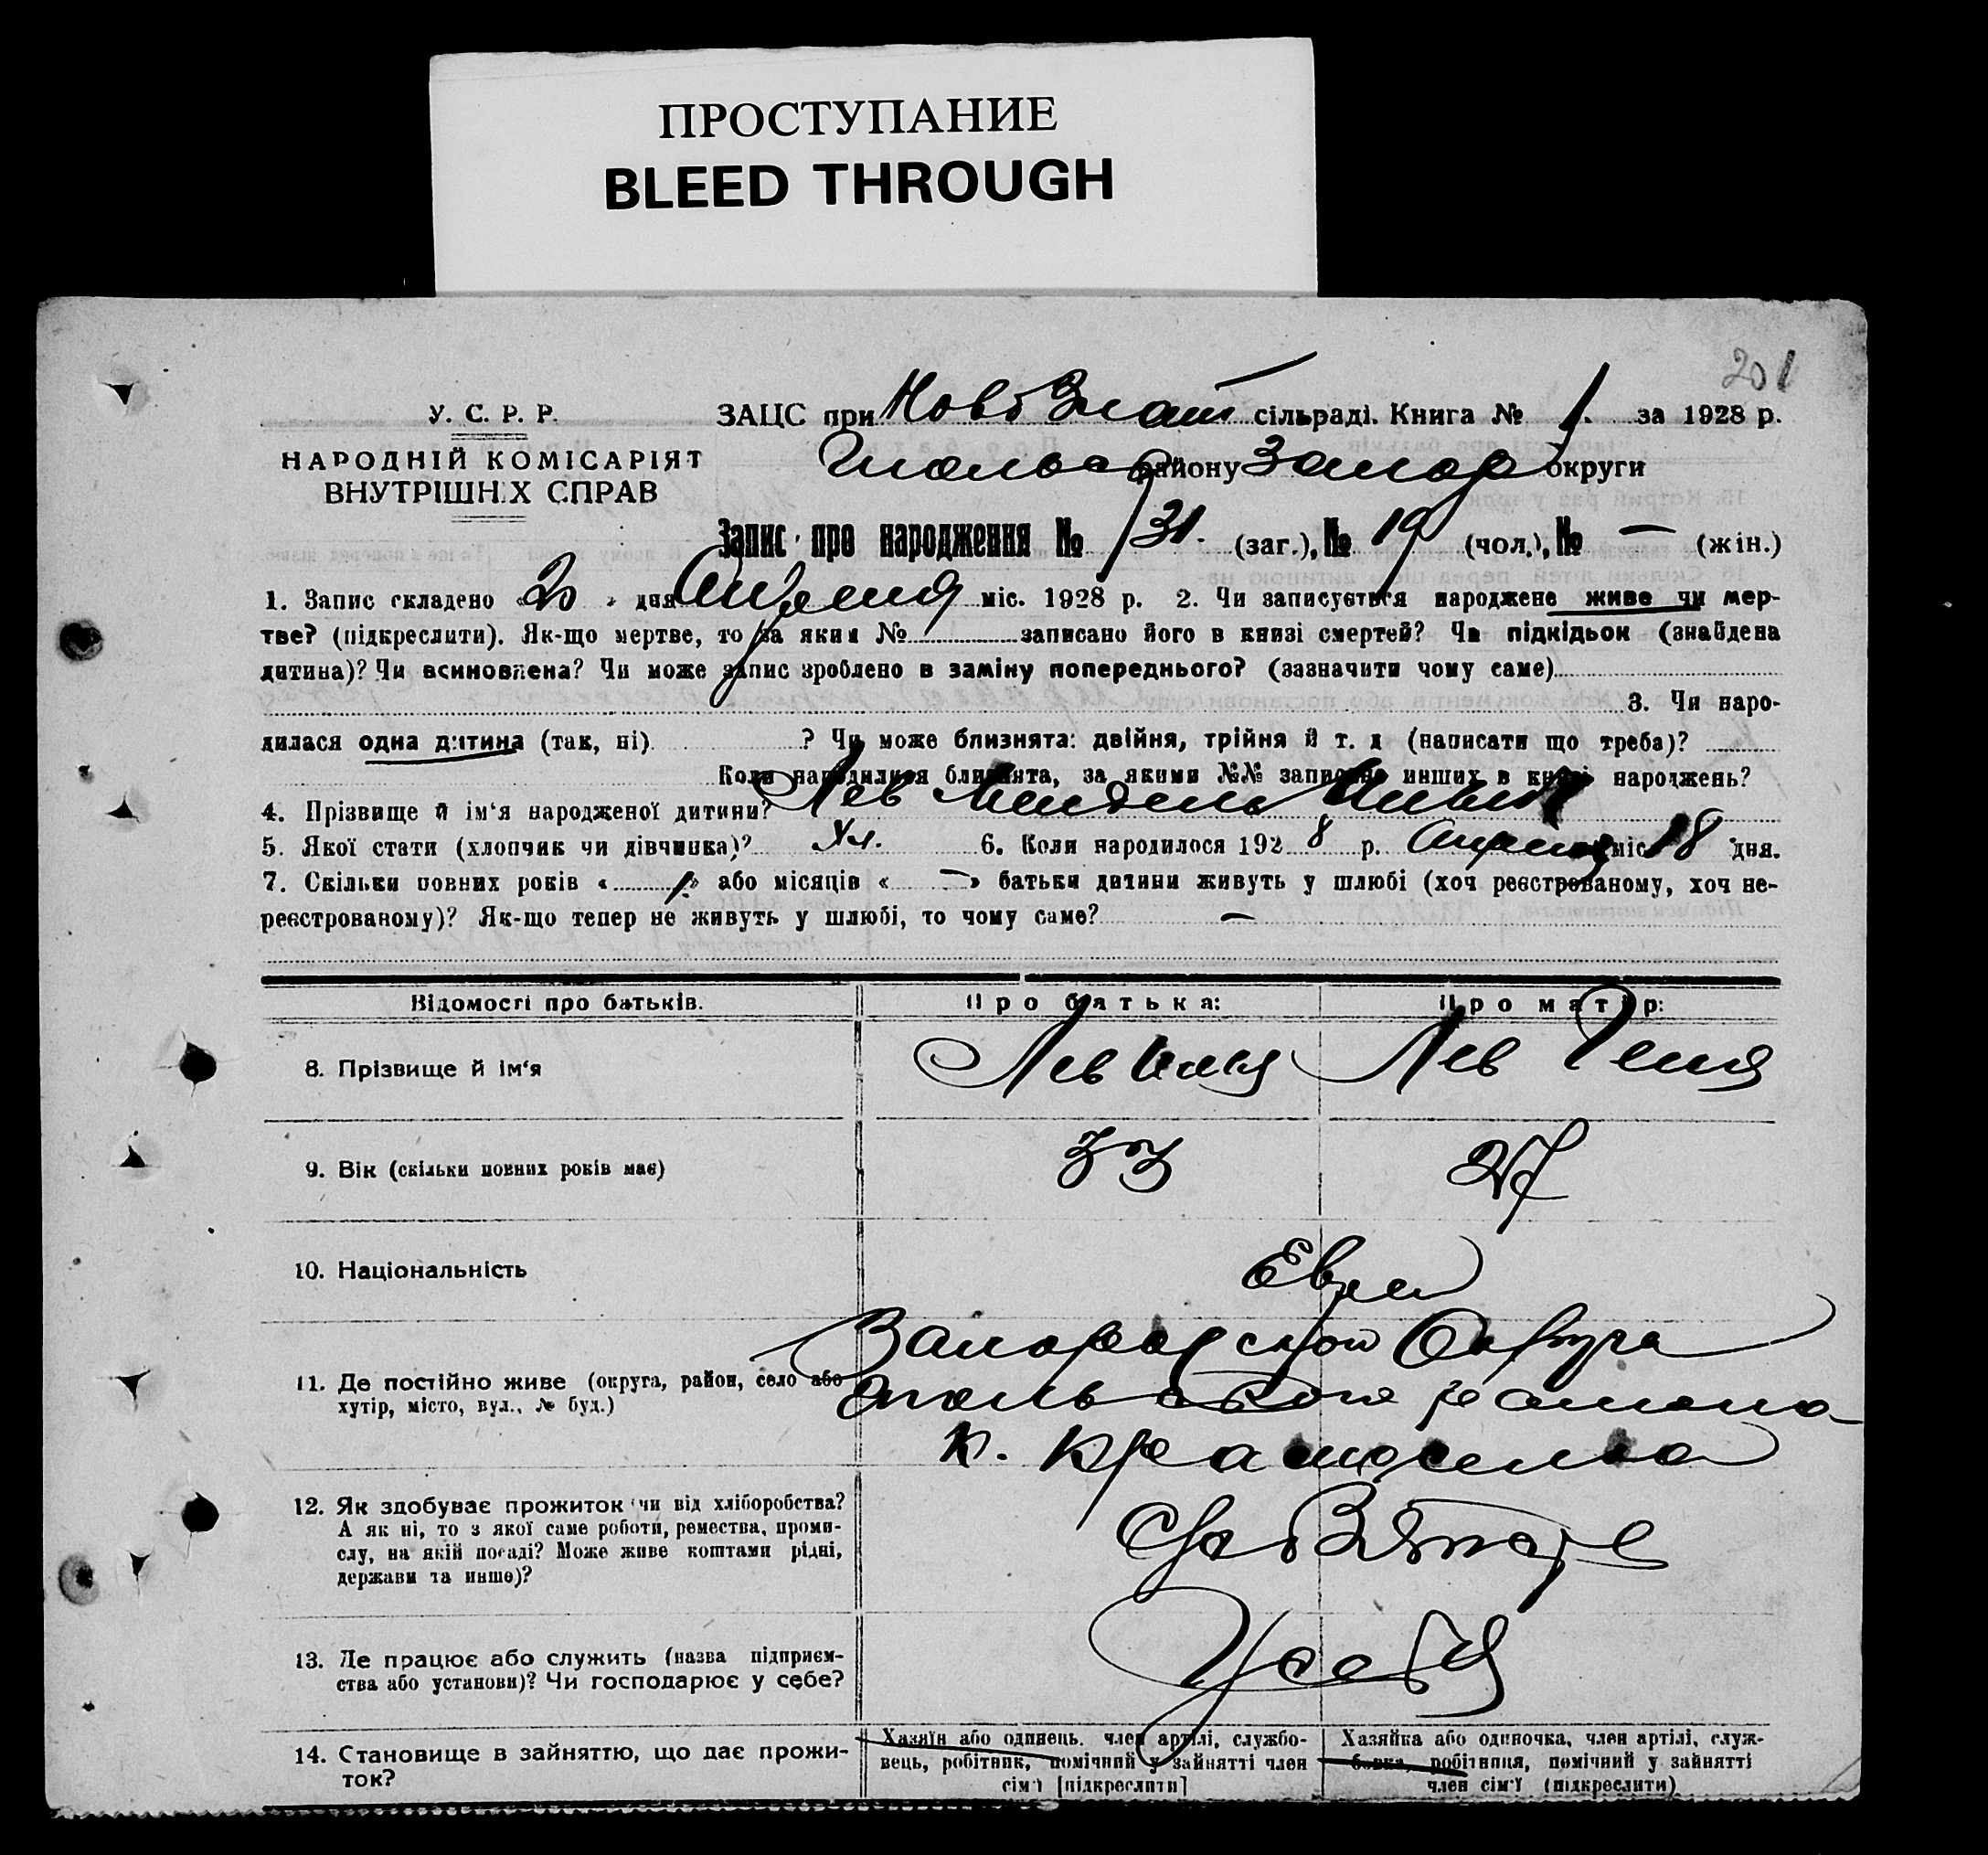 ПРОСТУПАНИЕ
BLEED THROUGH
201
У. С. Р. Р.
НАРОДНІЙ КОМІСАРІЯТ
ВНУТРІШНІХ СПРАВ
ЗАЦС при Ново Злат сільраді. Книга № 1. за 1928 р.
району Запор округи
Запис про народження № 31. (заг.), № 19 (чол.), № — (жін.)
1. Запис складено « 20 » дня Апреля міс. 1928 р. 2. Чи записується народжене живе чи мер-
тве? (підкреслити). Як-що мертве, то за яким № записано його в книзі смертей? Чи підкідьок (знайдена
дитина)? Чи всиновлена? Чи може запис зроблено в заміну попереднього? (зазначити чому саме)
3. Чи наро-
дилася одна дитина (так, ні) ? Чи може близнята: двійня, трійня й т. д (написати що треба)?
Коли народилися близнята, за якими №№ записано инших в книзі народжень?
4. Прізвище й ім‘я народженої дитини? Лев Мендель
5. Якої стати (хлопчик чи дівчинка)? 6. Коли народилося 1928 р. Апреля міс 18 дня.
7. Скільки повних років « » або місяців « — » батьки дитини живуть у шлюбі (хоч реєстрованому, хоч не-
реєстрованому)? Як-що тепер не живуть у шлюбі, то чому саме? —
Відомості про батьків. Про батька: Про матір:
8. Прізвище й ім‘я Лев Илья Лев Геня
9. Вік (скільки повних років має) 33 27
10. Національність Евреи
11. Де постійно живе (округа, район, село або
хутір, місто, вул., № буд.)
Округа
района
к.
12. Як здобуває прожиток чи від хліборобства?
А як ні, то з якої саме роботи, ремества, проми-
слу, на якій посаді? Може живе коштами рідні,
держави та инше)?
13. Де працює або служить (назва підприєм-
ства або установи)? Чи господарює у себе?
У себя
14. Становище в зайняттю, що дає прожи-
ток?
Хазяїн або одинець, член артілі, службо-
вець, робітник, помічний у зайнятті член
сім‘ї [підкреслити]
Хазяйка або одиночка, член артілі, служ-
бовка, робітниця, помічний у зайнятті
член сім‘ї (підкреслити)